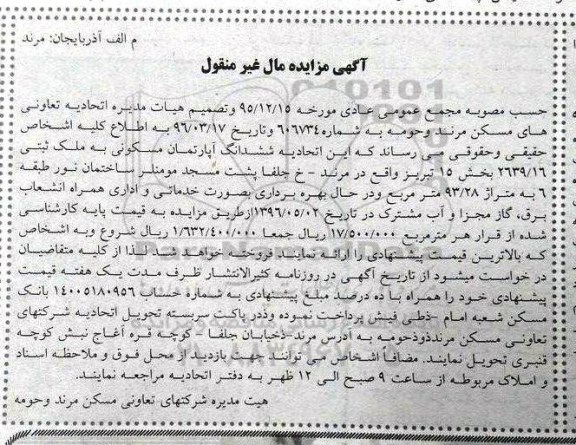 م الف آذربایجان: مرند
آگهی مزایده مال غیر منقول
حسب مصوبه مجمع عمومی عادی مورخه ۹۵/۱۲/۱۵ وتصمیم هیات مدیره اتحادیه تعاونی
های مسکن مرند وحومه به شماره ۶۰۶۷۳۴ وتاریخ ۹۶/۰۳/۱۷ به اطلاع کلیه اشخاص
حقیقی وحقوقی می رساند که این اتحادیه ششدانگ آپارتمان مسکونی به ملک ثبتی
۲۶۳۹/۱۶ بخش ۱۵ تبریز واقع در مرند - خ جلفا پشت مسجد مومنلر ساختمان نور طبقه
۶ به متراژ ۹۳/۲۸ متر مربع ودر حال بهره برداری بصورت خدماتی و اداری همراه انشعاب
برق، گاز مجزا و آب مشترک در تاریخ ۱۳۹۶/۰۵/۰۲ ازطریق مزایده به قیمت پایه کارشناسی
شده از قرار هر مترمربع ۱۷/۵۰۰/۰۰۰ ریال جمعا ۱/۶۳۲/۴۰۰/۰۰۰ ریال شروع وبه اشخاص
که بالاترین قیمت پیشنهادی را ارائه نمایند فروخته خواهد شد لذا از کلیه متقاضیان
در خواست میشود از تاریخ آگهی در روزنامه کثیرالانتشار ظرف مدت یک هفته قیمت
پیشنهادی خود را همراه با ده درصد مبلغ پیشنهادی به شماره حساب ۱۴۰۰۵۱۸۰۹۵۶ بانک
مسکن شعبه امام -طی فیش پرداخت نموده ودر پاکت سربسته تحویل اتحادیه شرکتهای
تعاونی مسکن مرند وحومه به آدرس مرند-خیابان جلفا - کوچه قره آغاج نبش کوچه
قنبری تحویل نمایند. مضافاً اشخاص می توانند جهت بازدید از محل فوق و ملاحظه اسناد
و املاک مربوطه از ساعت ۹ صبح الی ۱۲ ظهر به دفتر اتحادیه مراجعه نمایند.
هیت مدیره شرکتهای تعاونی مسکن مرند وحومه